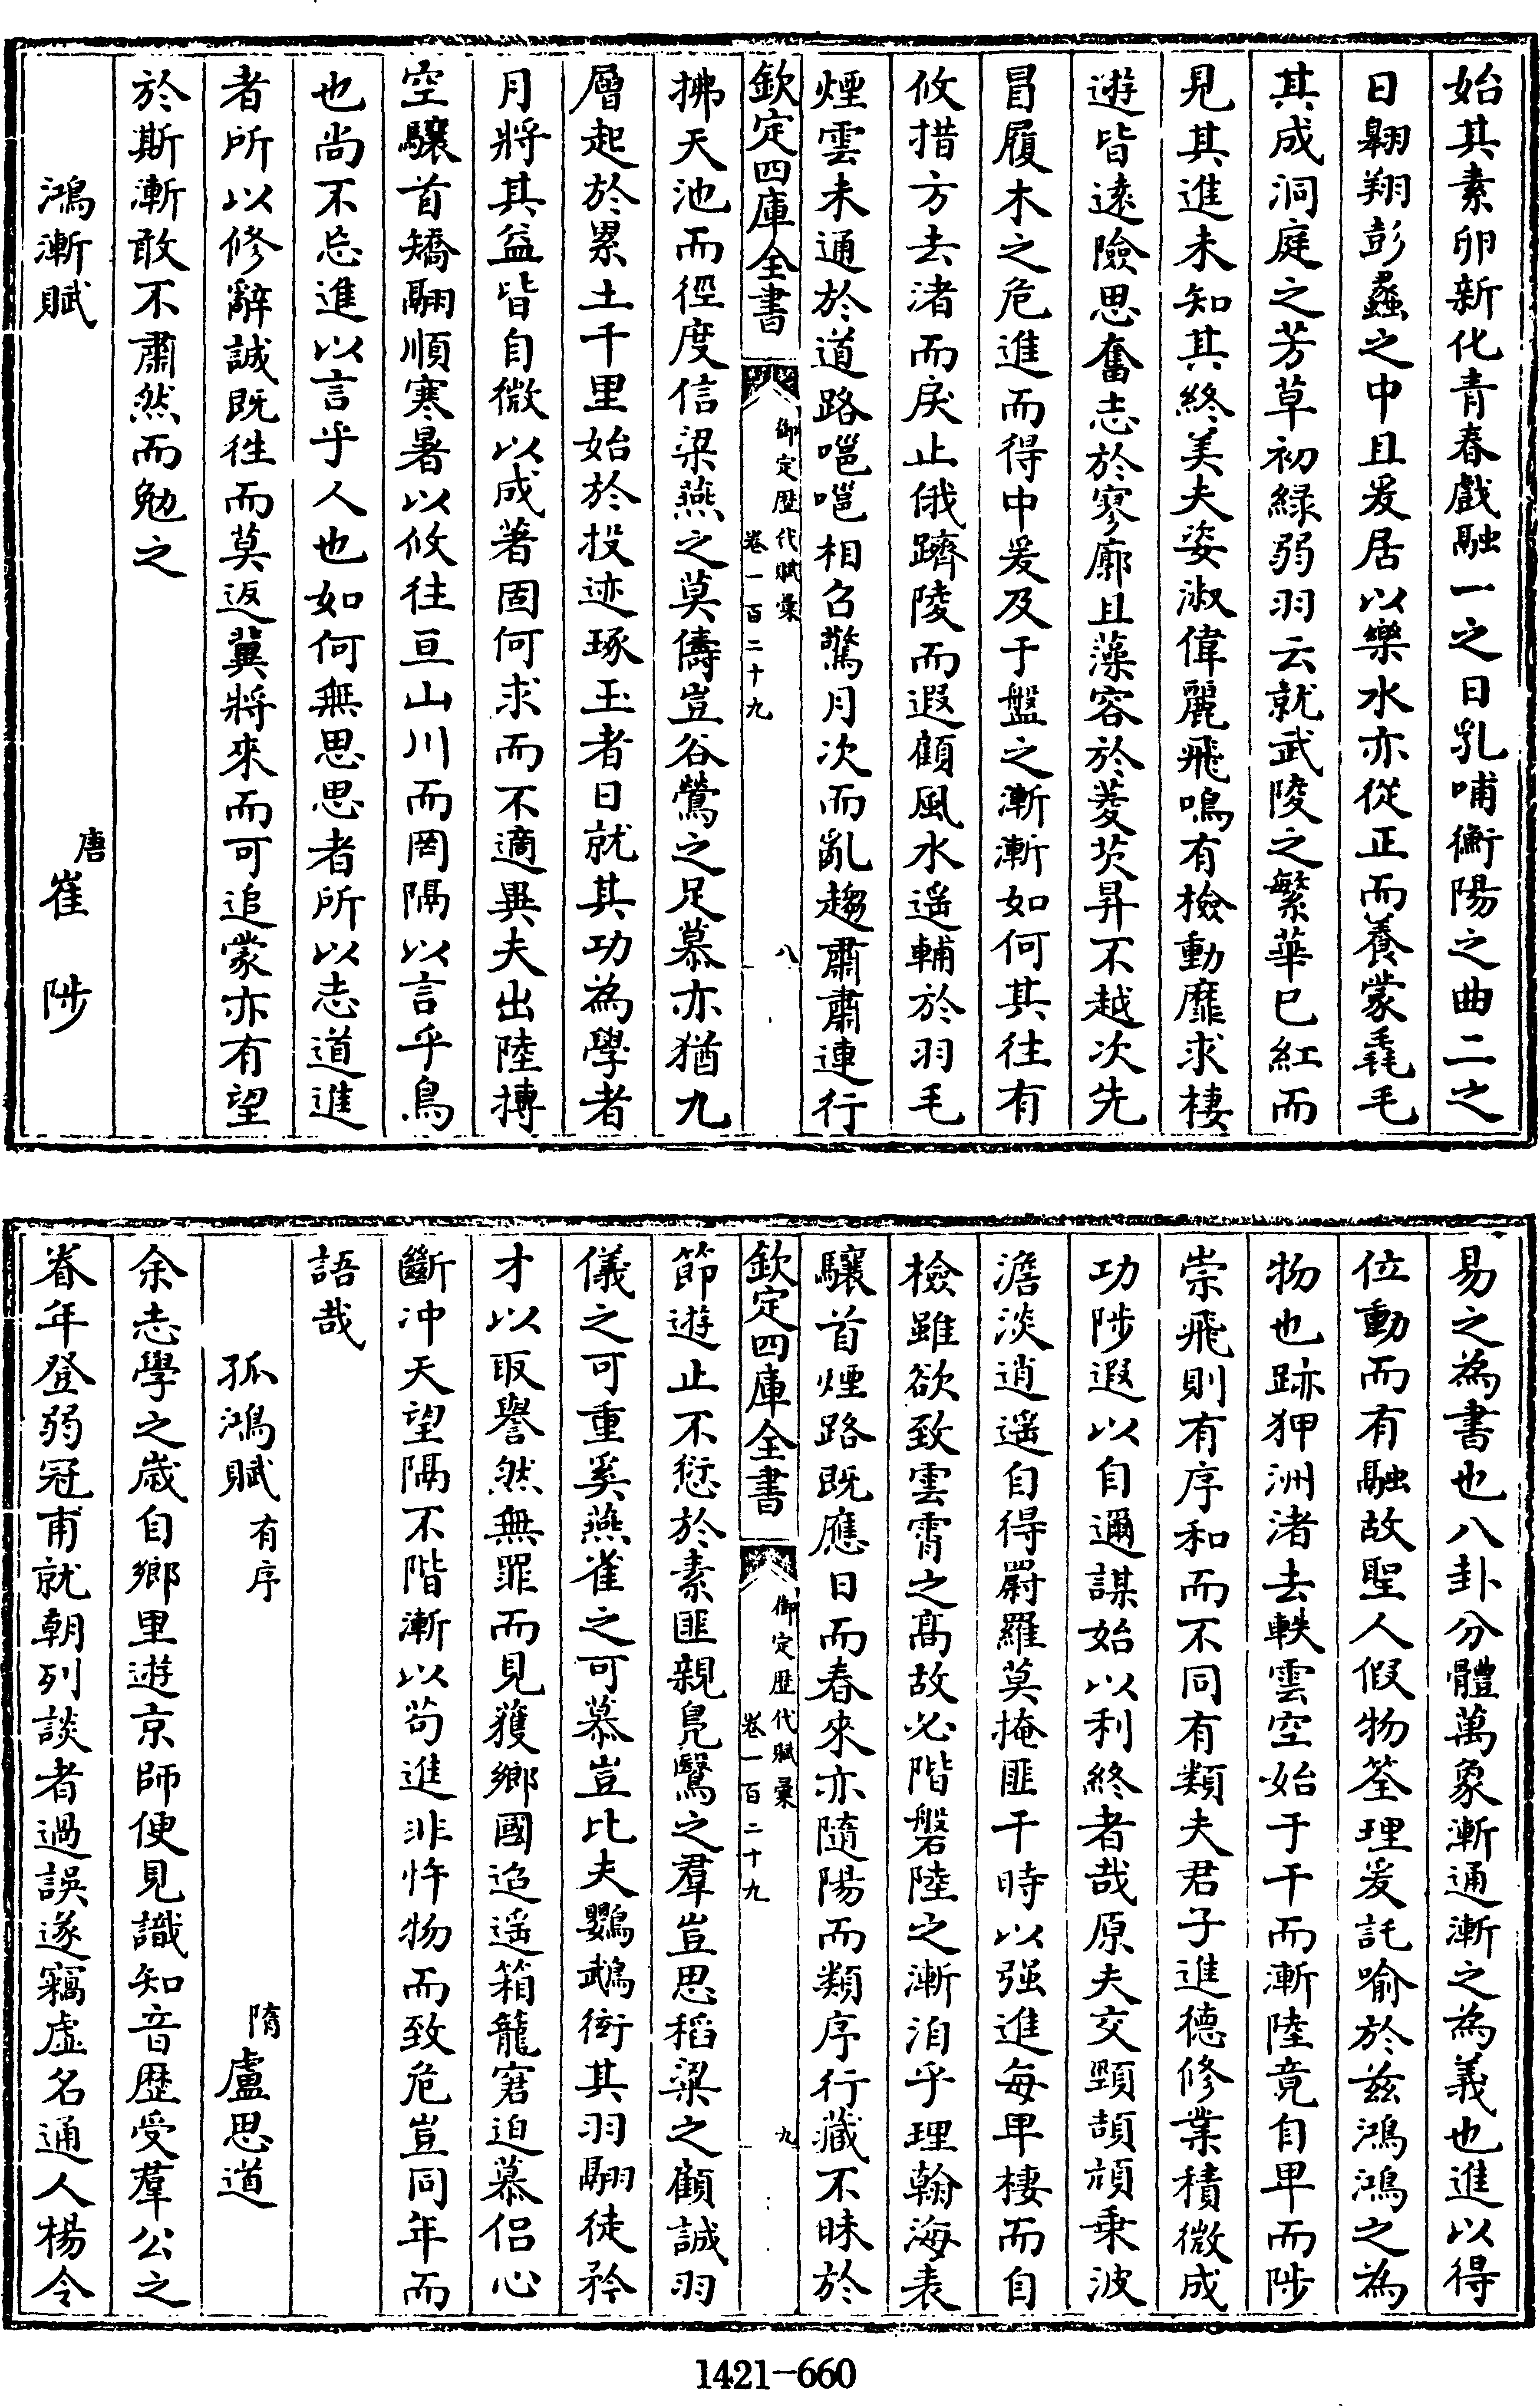 始其素卵新化青春戲融一之日乳哺衡陽之曲二之
日翺翔彭蠡之中且爰居以樂水亦從正而養蒙毳毛
其成洞庭之芳草初緑弱羽云就武陵之繁華已紅而
見其進未知其終美夫姿淑偉麗飛鳴有檢動靡求棲
遊皆遠險思奮志於寥廓且藻容於菱芡昇不越次先
冒履木之危進而得中爰及于盤之漸漸如何其往有
攸措方去渚而戾止俄躋陵而遐顧風水遥輔於羽毛
煙雲未通於道路嗈嗈相召驚月次而亂趨肅肅連行
欽定四庫全書 御定歷代賦彙 卷一百二十九 八
拂天池而徑度信梁燕之莫儔豈谷鶯之足慕亦猶九
層起於累土千里始於投迹琢玉者日就其功為學者
月將其益皆自微以成著固何求而不適異夫出陸摶
空驤首矯翮順寒暑以攸往亘山川而罔隔以言乎鳥
也尚不忘進以言乎人也如何無思思者所以志道進
者所以修辭誠既往而莫返冀將來而可追蒙亦有望
於斯漸敢不肅然而勉之
鴻漸賦 唐 崔陟
易之為書也八卦分體萬象漸通漸之為義也進以得
位動而有融故聖人假物筌理爰託喻於兹鴻鴻之為
物也跡狎洲渚去軼雲空始于干而漸陸竟自卑而陟
崇飛則有序和而不同有類夫君子進德修業積微成
功陟遐以自邇謀始以利終者哉原夫交頸頡頏乗波
澹淡逍遥自得罻羅莫掩匪干時以强進每卑棲而自
檢雖欲致雲霄之髙故必階磐陸之漸洎乎理翰海表
驤首煙路既應日而春來亦隨陽而類序行藏不昧於
欽定四庫全書 御定歷代賦彙 卷一百二十九 九
節遊止不愆於素匪親鳧鷖之羣豈思稻粱之顧誠羽
儀之可重奚燕雀之可慕豈比夫鸚鵡衒其羽翮徒矜
才以取譽然無罪而見獲鄉國迢遥箱籠窘迫慕侣心
斷冲天望隔不階漸以茍進非忤物而致危豈同年而
語哉
孤鴻賦 有序 隋 盧思道
余志學之歲自鄉里遊京師便見識知音歷受羣公之
眷年登弱冠甫就朝列談者過誤遂竊虚名通人楊令
1421-660